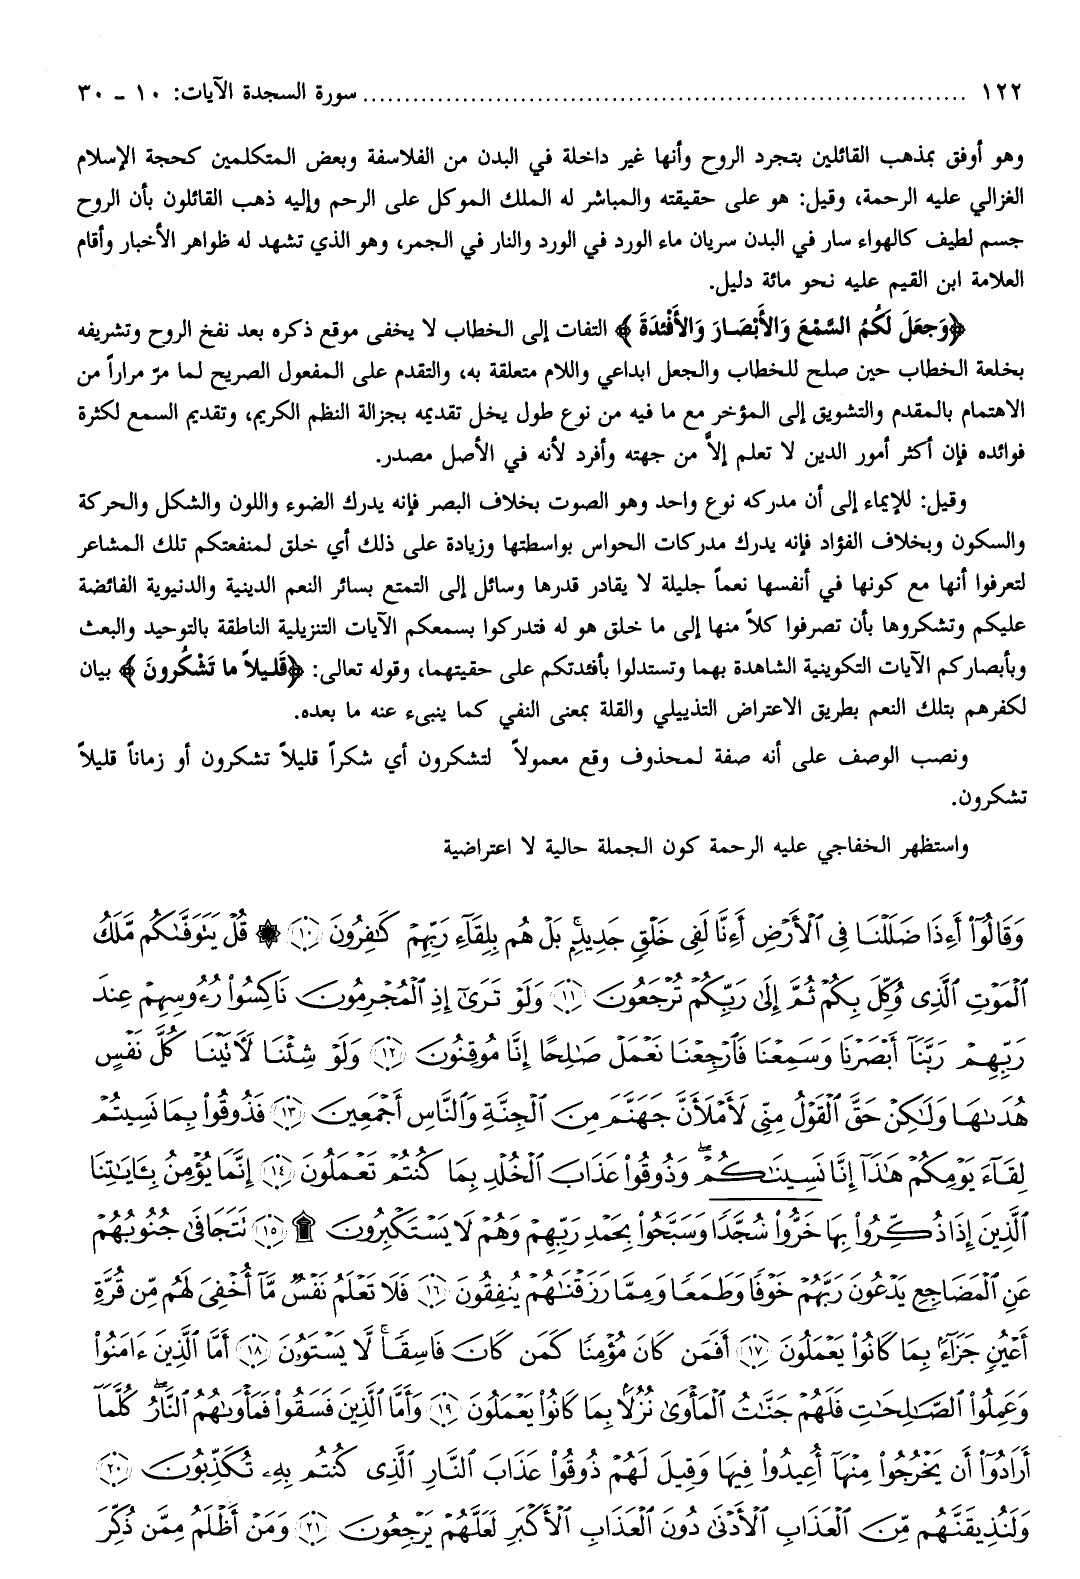 ١٢٢ ........................................................................ سورة السجدة الآيات: ١٠ ـ ٣٠
وهو أوفق بمذهب القائلين بتجرد الروح وأنها غير داخلة في البدن من الفلاسفة وبعض المتكلمين كحجة الإسلام
الغزالي عليه الرحمة، وقيل: هو على حقيقته والمباشر له الملك الموكل على الرحم وإليه ذهب القائلون بأن الروح
جسم لطيف كالهواء سار في البدن سريان ماء الورد في الورد والنار في الجمر، وهو الذي تشهد له ظواهر الأخبار وأقام
العلامة ابن القيم عليه نحو مائة دليل.
﴿وَجَعَلَ لَكُمُ السَّمْعَ وَالأَبْصَارَ وَالأَفْئدَةَ﴾ التفات إلى الخطاب لا يخفى موقع ذكره بعد نفخ الروح وتشريفه
بخلعة الخطاب حين صلح للخطاب والجعل ابداعي واللام متعلقة به، والتقدم على المفعول الصريح لما مرّ مراراً من
الاهتمام بالمقدم والتشويق إلى المؤخر مع ما فيه من نوع طول يخل تقديمه بجزالة النظم الكريم، وتقديم السمع لكثرة
فوائده فإن أكثر أمور الدين لا تعلم إلاَّ من جهته وأفرد لأنه في الأصل مصدر.
وقيل: للإيماء إلى أن مدركه نوع واحد وهو الصوت بخلاف البصر فإنه يدرك الضوء واللون والشكل والحركة
والسكون وبخلاف الفؤاد فإنه يدرك مدركات الحواس بواسطتها وزيادة على ذلك أي خلق لمنفعتكم تلك المشاعر
لتعرفوا أنها مع كونها في أنفسها نعماً جليلة لا يقادر قدرها وسائل إلى التمتع بسائر النعم الدينية والدنيوية الفائضة
عليكم وتشكروها بأن تصرفوا كلاً منها إلى ما خلق هو له فتدركوا بسمعكم الآيات التنزيلية الناطقة بالتوحيد والبعث
وبأبصاركم الآيات التكوينية الشاهدة بهما وتستدلوا بأفئدتكم على حقيتهما، وقوله تعالى: ﴿قَليلاً ما تَشْكُرونَ﴾ بيان
لكفرهم بتلك النعم بطريق الاعتراض التذييلي والقلة بمعنى النفي كما ينبىء عنه ما بعده.
ونصب الوصف على أنه صفة لمحذوف وقع معمولاً لتشكرون أي شكراً قليلاً تشكرون أو زماناً قليلاً
تشكرون.
واستظهر الخفاجي عليه الرحمة كون الجملة حالية لا اعتراضية
وَقَالُوٓاْ أَءِذَا ضَلَلْنَا فِى ٱلْأَرْضِ أَءِنَّا لَفِى خَلْقٍ جَدِيدٍۭ بَلْ هُم بِلِقَآءِ رَبِّهِمْ كَٰفِرُونَ ﴿١٠﴾ ۞ قُلْ يَتَوَفَّىٰكُم مَّلَكُ
ٱلْمَوْتِ ٱلَّذِى وُكِّلَ بِكُمْ ثُمَّ إِلَىٰ رَبِّكُمْ تُرْجَعُونَ ﴿١١﴾ وَلَوْ تَرَىٰٓ إِذِ ٱلْمُجْرِمُونَ نَاكِسُواْ رُءُوسِهِمْ عِندَ
رَبِّهِمْ رَبَّنَآ أَبْصَرْنَا وَسَمِعْنَا فَٱرْجِعْنَا نَعْمَلْ صَٰلِحًا إِنَّا مُوقِنُونَ ﴿١٢﴾ وَلَوْ شِئْنَا لَأٓتَيْنَا كُلَّ نَفْسٍ
هُدَىٰهَا وَلَٰكِنْ حَقَّ ٱلْقَوْلُ مِنِّى لَأَمْلَأَنَّ جَهَنَّمَ مِنَ ٱلْجِنَّةِ وَٱلنَّاسِ أَجْمَعِينَ ﴿١٣﴾ فَذُوقُواْ بِمَا نَسِيتُمْ
لِقَآءَ يَوْمِكُمْ هَٰذَآ إِنَّا نَسِينَٰكُمْ ۖ وَذُوقُواْ عَذَابَ ٱلْخُلْدِ بِمَا كُنتُمْ تَعْمَلُونَ ﴿١٤﴾ إِنَّمَا يُؤْمِنُ بِـَٔايَٰتِنَا
ٱلَّذِينَ إِذَا ذُكِّرُواْ بِهَا خَرُّواْ سُجَّدًا وَسَبَّحُواْ بِحَمْدِ رَبِّهِمْ وَهُمْ لَا يَسْتَكْبِرُونَ ۩ ﴿١٥﴾ تَتَجَافَىٰ جُنُوبُهُمْ
عَنِ ٱلْمَضَاجِعِ يَدْعُونَ رَبَّهُمْ خَوْفًا وَطَمَعًا وَمِمَّا رَزَقْنَٰهُمْ يُنفِقُونَ ﴿١٦﴾ فَلَا تَعْلَمُ نَفْسٌ مَّآ أُخْفِىَ لَهُم مِّن قُرَّةِ
أَعْيُنٍ جَزَآءًۢ بِمَا كَانُواْ يَعْمَلُونَ ﴿١٧﴾ أَفَمَن كَانَ مُؤْمِنًا كَمَن كَانَ فَاسِقًا ۚ لَّا يَسْتَوُۥنَ ﴿١٨﴾ أَمَّا ٱلَّذِينَ ءَامَنُواْ
وَعَمِلُواْ ٱلصَّٰلِحَٰتِ فَلَهُمْ جَنَّٰتُ ٱلْمَأْوَىٰ نُزُلًۢا بِمَا كَانُواْ يَعْمَلُونَ ﴿١٩﴾ وَأَمَّا ٱلَّذِينَ فَسَقُواْ فَمَأْوَىٰهُمُ ٱلنَّارُ ۖ كُلَّمَآ
أَرَادُوٓاْ أَن يَخْرُجُواْ مِنْهَآ أُعِيدُواْ فِيهَا وَقِيلَ لَهُمْ ذُوقُواْ عَذَابَ ٱلنَّارِ ٱلَّذِى كُنتُم بِهِۦ تُكَذِّبُونَ ﴿٢٠﴾
وَلَنُذِيقَنَّهُم مِّنَ ٱلْعَذَابِ ٱلْأَدْنَىٰ دُونَ ٱلْعَذَابِ ٱلْأَكْبَرِ لَعَلَّهُمْ يَرْجِعُونَ ﴿٢١﴾ وَمَنْ أَظْلَمُ مِمَّن ذُكِّرَ